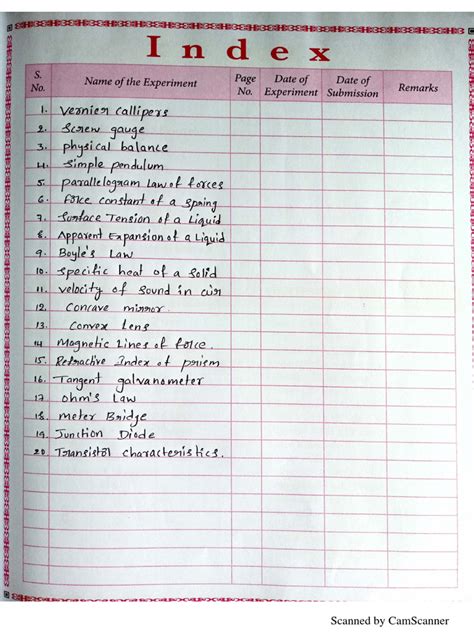 Index
S. No. Name of the Experiment Page No. Date of Experiment Date of Submission Remarks
1. Vernier Callipers
2. Screw gauge
3. physical balance
4. Simple pendulum
5. parallelogram Law of forces
6. force constant of a Spring
7. Surface Tension of a Liquid
8. Apparent Expansion of a Liquid
9. Boyle's Law
10. Specific heat of a Solid
11. velocity of Sound in air
12. Concave mirror.
13. Convex Lens
14 Magnetic Lines of force.
15. Refractive Index of prism
16. Tangent galvanometer
17. ohm's Law
18. meter Bridge
19. Junction Diode
20. Transistor characteristics.
Scanned by CamScanner